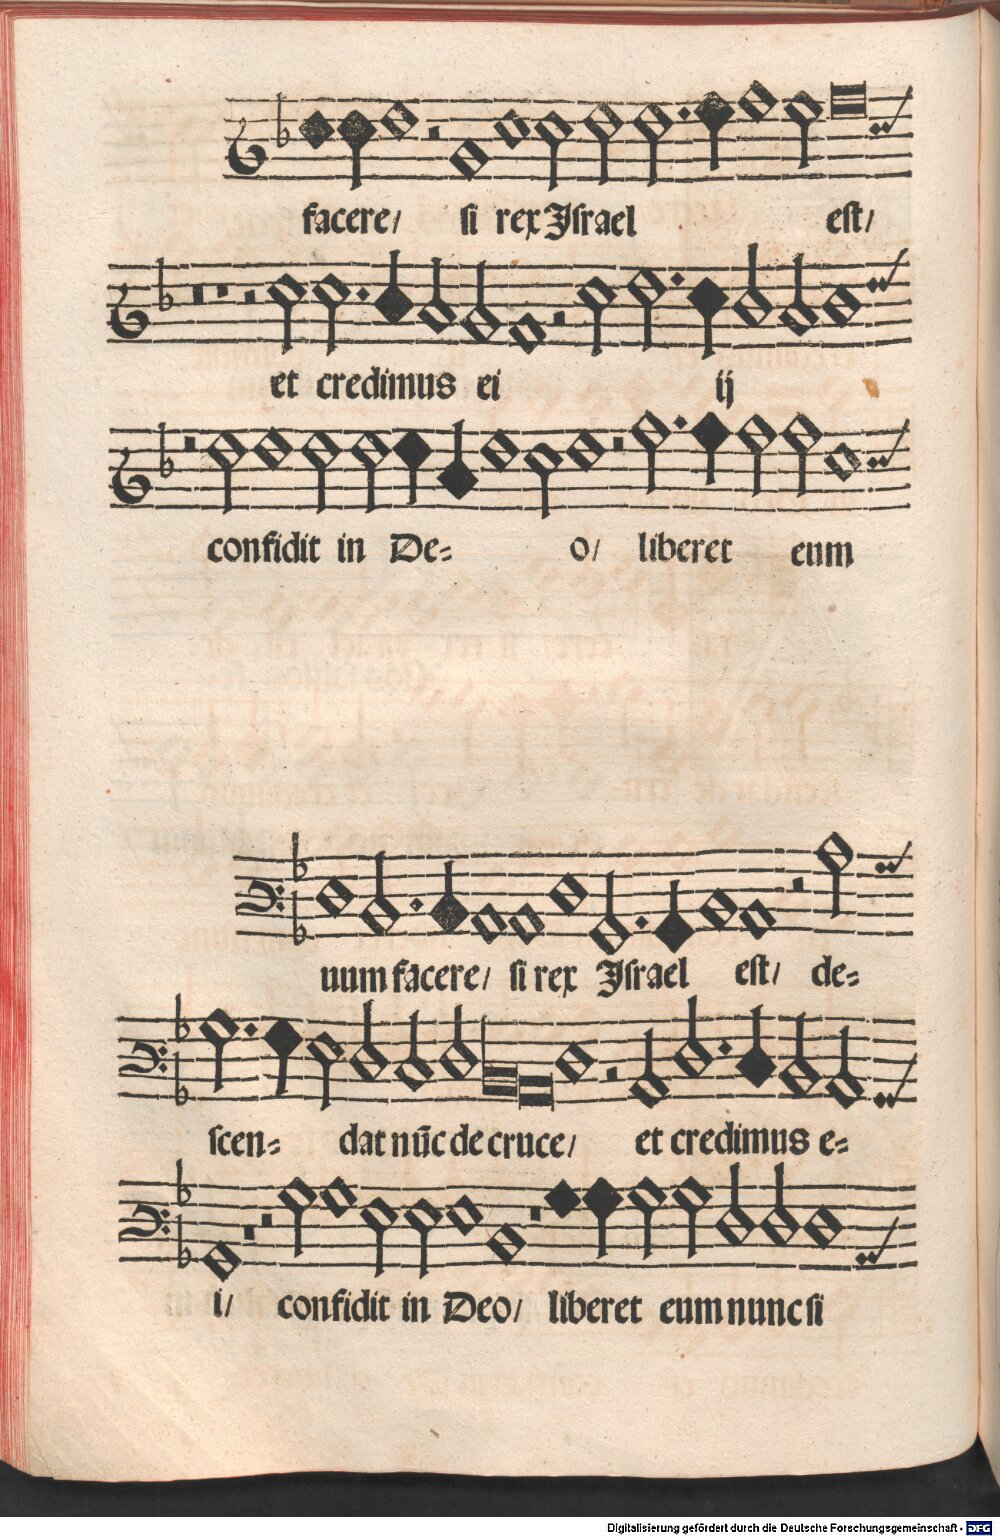 facere/ si rex Jſrael eſt/
et credimus ei ij
confidit in De= o/ liberet eum
uum facere/ si rex Jſrael eſt/ de=
ſcen= dat nūc de cruce/ et credimus e=
i/ confidit in Deo/ liberet eum nunc ſi
Digitalisierung gefördert durch die Deutsche Forschungsgemeinschaft - DFG